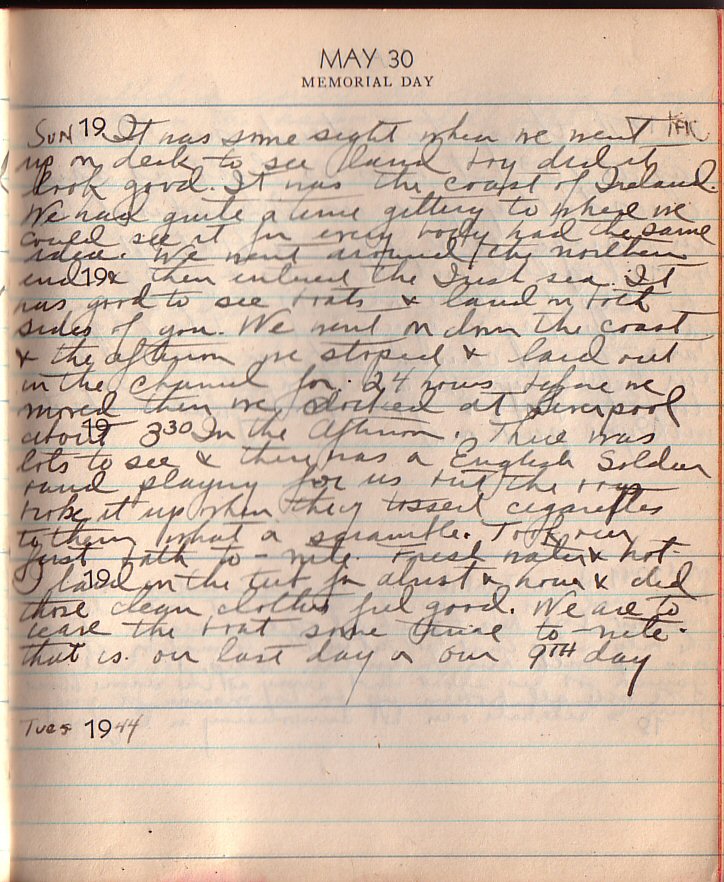 MAY 30
MEMORIAL DAY
SUN 19 It was some sight when we went
up on deck to see land boy did it
look good. It was the coast of Ireland.
We had quite a time getting to where we
could see it for every body had the same
idea. We went around the northern
end 19 & then entered the Irish sea. It
was good to see boats & land on both
sides of you. We went on down the coast
& the afternon we stoped & laid out
in the channel for 24 hours before we
moved then we docked at Liverpool
about 19 3 30 In the afternon. There was
lots to see & there was a English Soldier
band playing for us but the boys
broke it up when they tossed cigarettes
to them what a scramble. Took our
first bath to-nite. Fresh water & hot
I laid 19 in the tub for almost & hour & did
those clean clothes feel good. We are to
leave the boat some time to-nite.
that is our last day or our 9TH day
Tues 1944